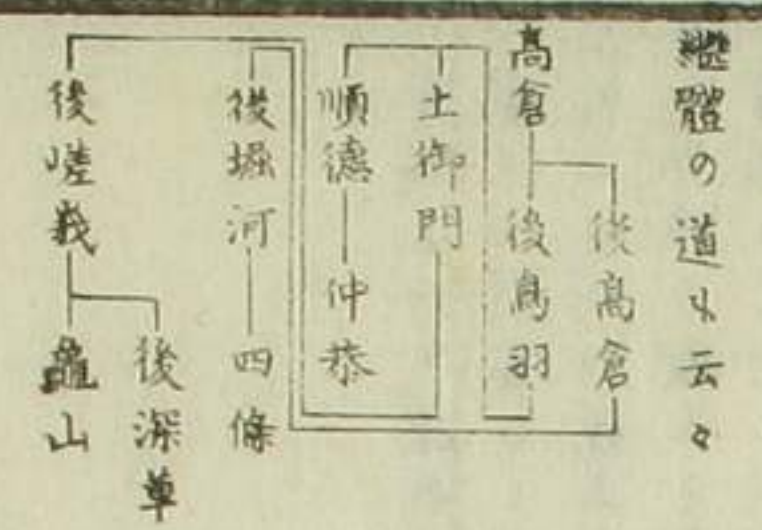 繼體の道も云々
後高倉
高倉 後鳥羽
土御門
順德 仲恭
後堀河 四條
後深草
後嵯峩 龜山